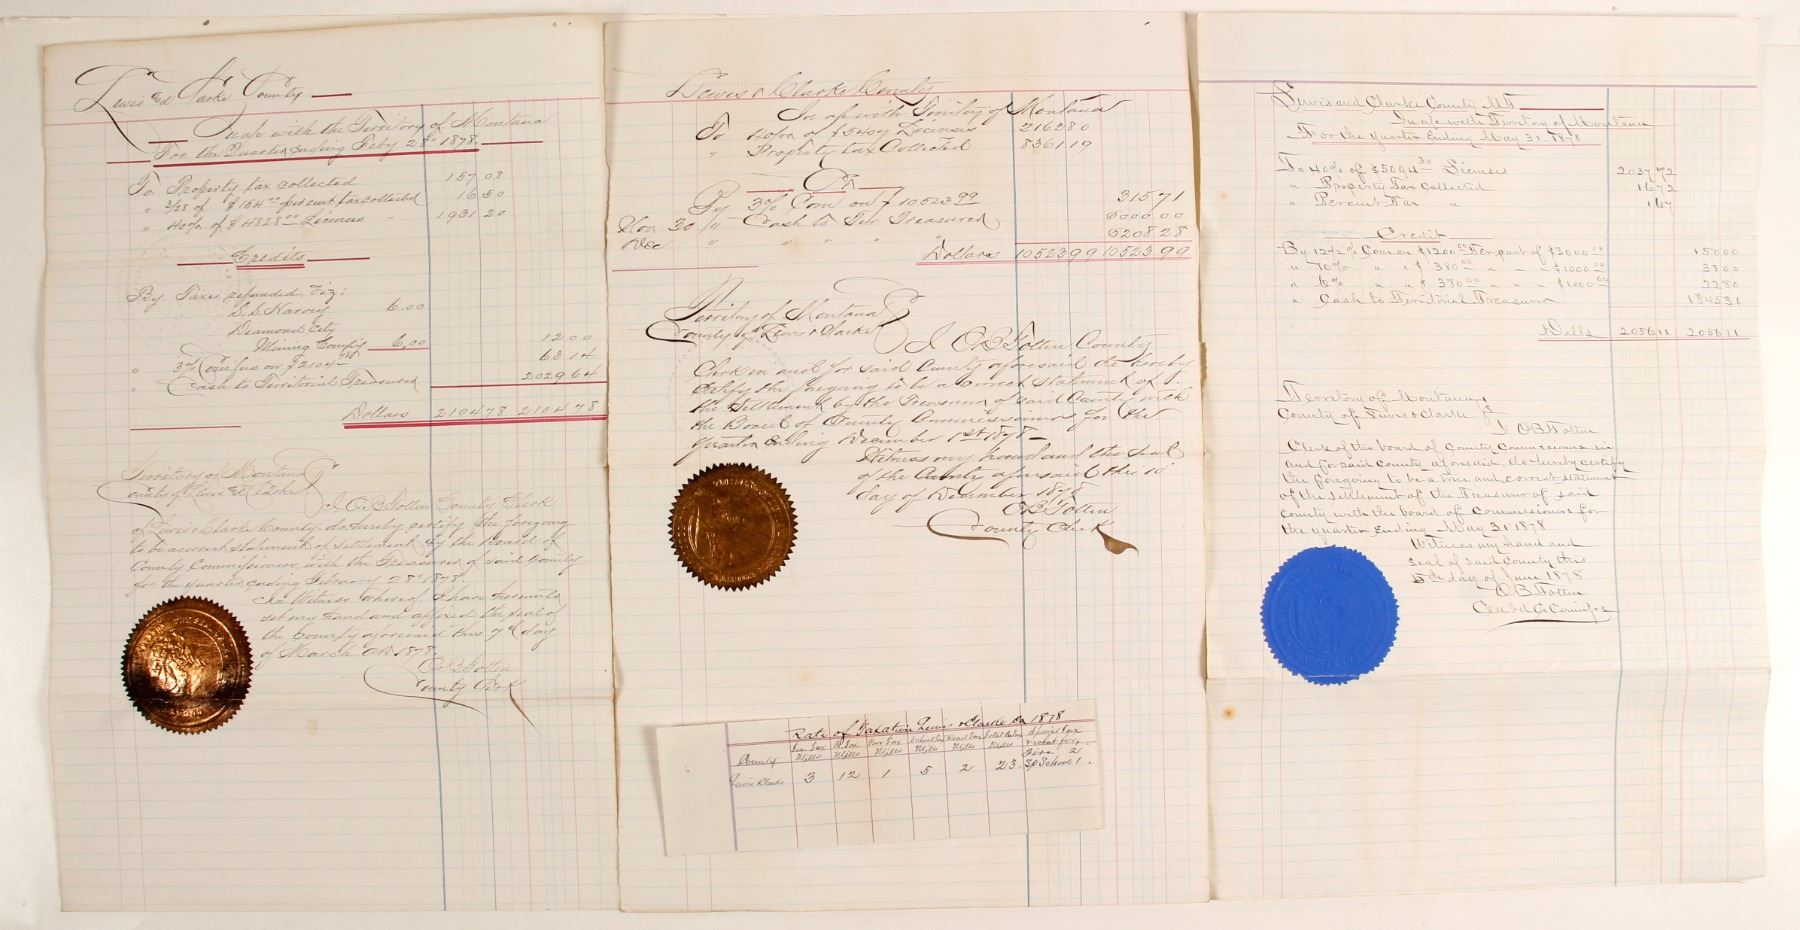 Lewis & Clarke County
In a/c with the Territory of Montana
For the Quarter ending Feby 28th 1878.
To Property tax collected 157.08
" 3/28 of $154.00 per cent tax collected 16.50
" 40% of $4828.00 Licenses " 1931.20
Credits
By Taxes refunded, Viz:
S. S. Harvey 6.00
Diamond City
Mining Comp'y 6.00 12.00
" 3% Com's on $2104.78 63.14
" Cash to Territorial Treasurer 2029.64
Dollars 2104.78 2104.78
Territory of Montana
County of Lewis & Clarke
I O. B. Totten County Clerk
of Lewis & Clarke County, do hereby certify the foregoing
to be a correct statement of settlement by the Board of
County Commissioners, with the Treasurer of said County
for the quarter ending February 28" 1878.
In Witness whereof I have hereunto
set my hand and affixed the seal of
the County aforesaid this 7th day
of March A.D. 1878.
O. B. Totten
County Clerk
Lewis & Clarke County
In a/c with Territory of Montana
To 40% of $5407 Licenses 2162.80
" Property tax Collected 8361.19
Cr
By 3% Com on $10523.99 315.71
Nov 30 " Cash to Ter Treasurer 5000.00
Dec " " " " " 5208.28
Dollars 10523.99 10523.99
Territory of Montana
County of Lewis & Clarke
I O. B. Totten County
Clerk in and for said County aforesaid do hereby
certify the foregoing to be a correct statement of
the Settlement by the Treasurer of said County with
the Board of County Commissioners for the
quarter ending December 1st 1878 -
Witness my hand and the seal
of the County aforesaid this 10
day of December 1878
O. B. Totten
County Clerk
Rate of Taxation Lewis & Clarke Co 1878
County Mills Mills Poor Tax Mills School Tax Mills Road Tax Mills Total Mills Special Tax & what for
Fire 2
Lewis & Clarke 3 12 1 5 2 23. Sp School 1.
Lewis and Clarke County M.T.
In a/c with Territory of Montana
For the quarter Ending May 31. 1878
To 40% of $5094.30 Licenses 2037.72
" Property Tax Collected 16.72
" Percent Tax " 1.67
Credit
By 12 1/2 % Com on $1200.00 Ter part of $3000.00 150.00
" 10% " " $380.00 " " " $1000.00 38.00
" 6% " " $380.00 " " " $1000.00 22.80
" Cash to Territorial Treasurer 1845.31
Dolls 2056.11 2056.11
Territory of Montana
County of Lewis & Clarke
I O. B. Totten
Clerk of the board of County Commissioners in
and for said County aforesaid, do hereby certify
the foregoing to be a true and correct statement
of the settlement of the Treasurer of said
county with the board of Commissioners for
the quarter Ending May 31 1878
Witness my hand and
seal of said county this
5th day of June 1878
O. B. Totten
Clk bd Co Comm'rs